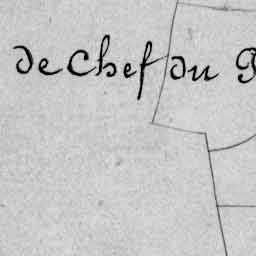 de Chef du